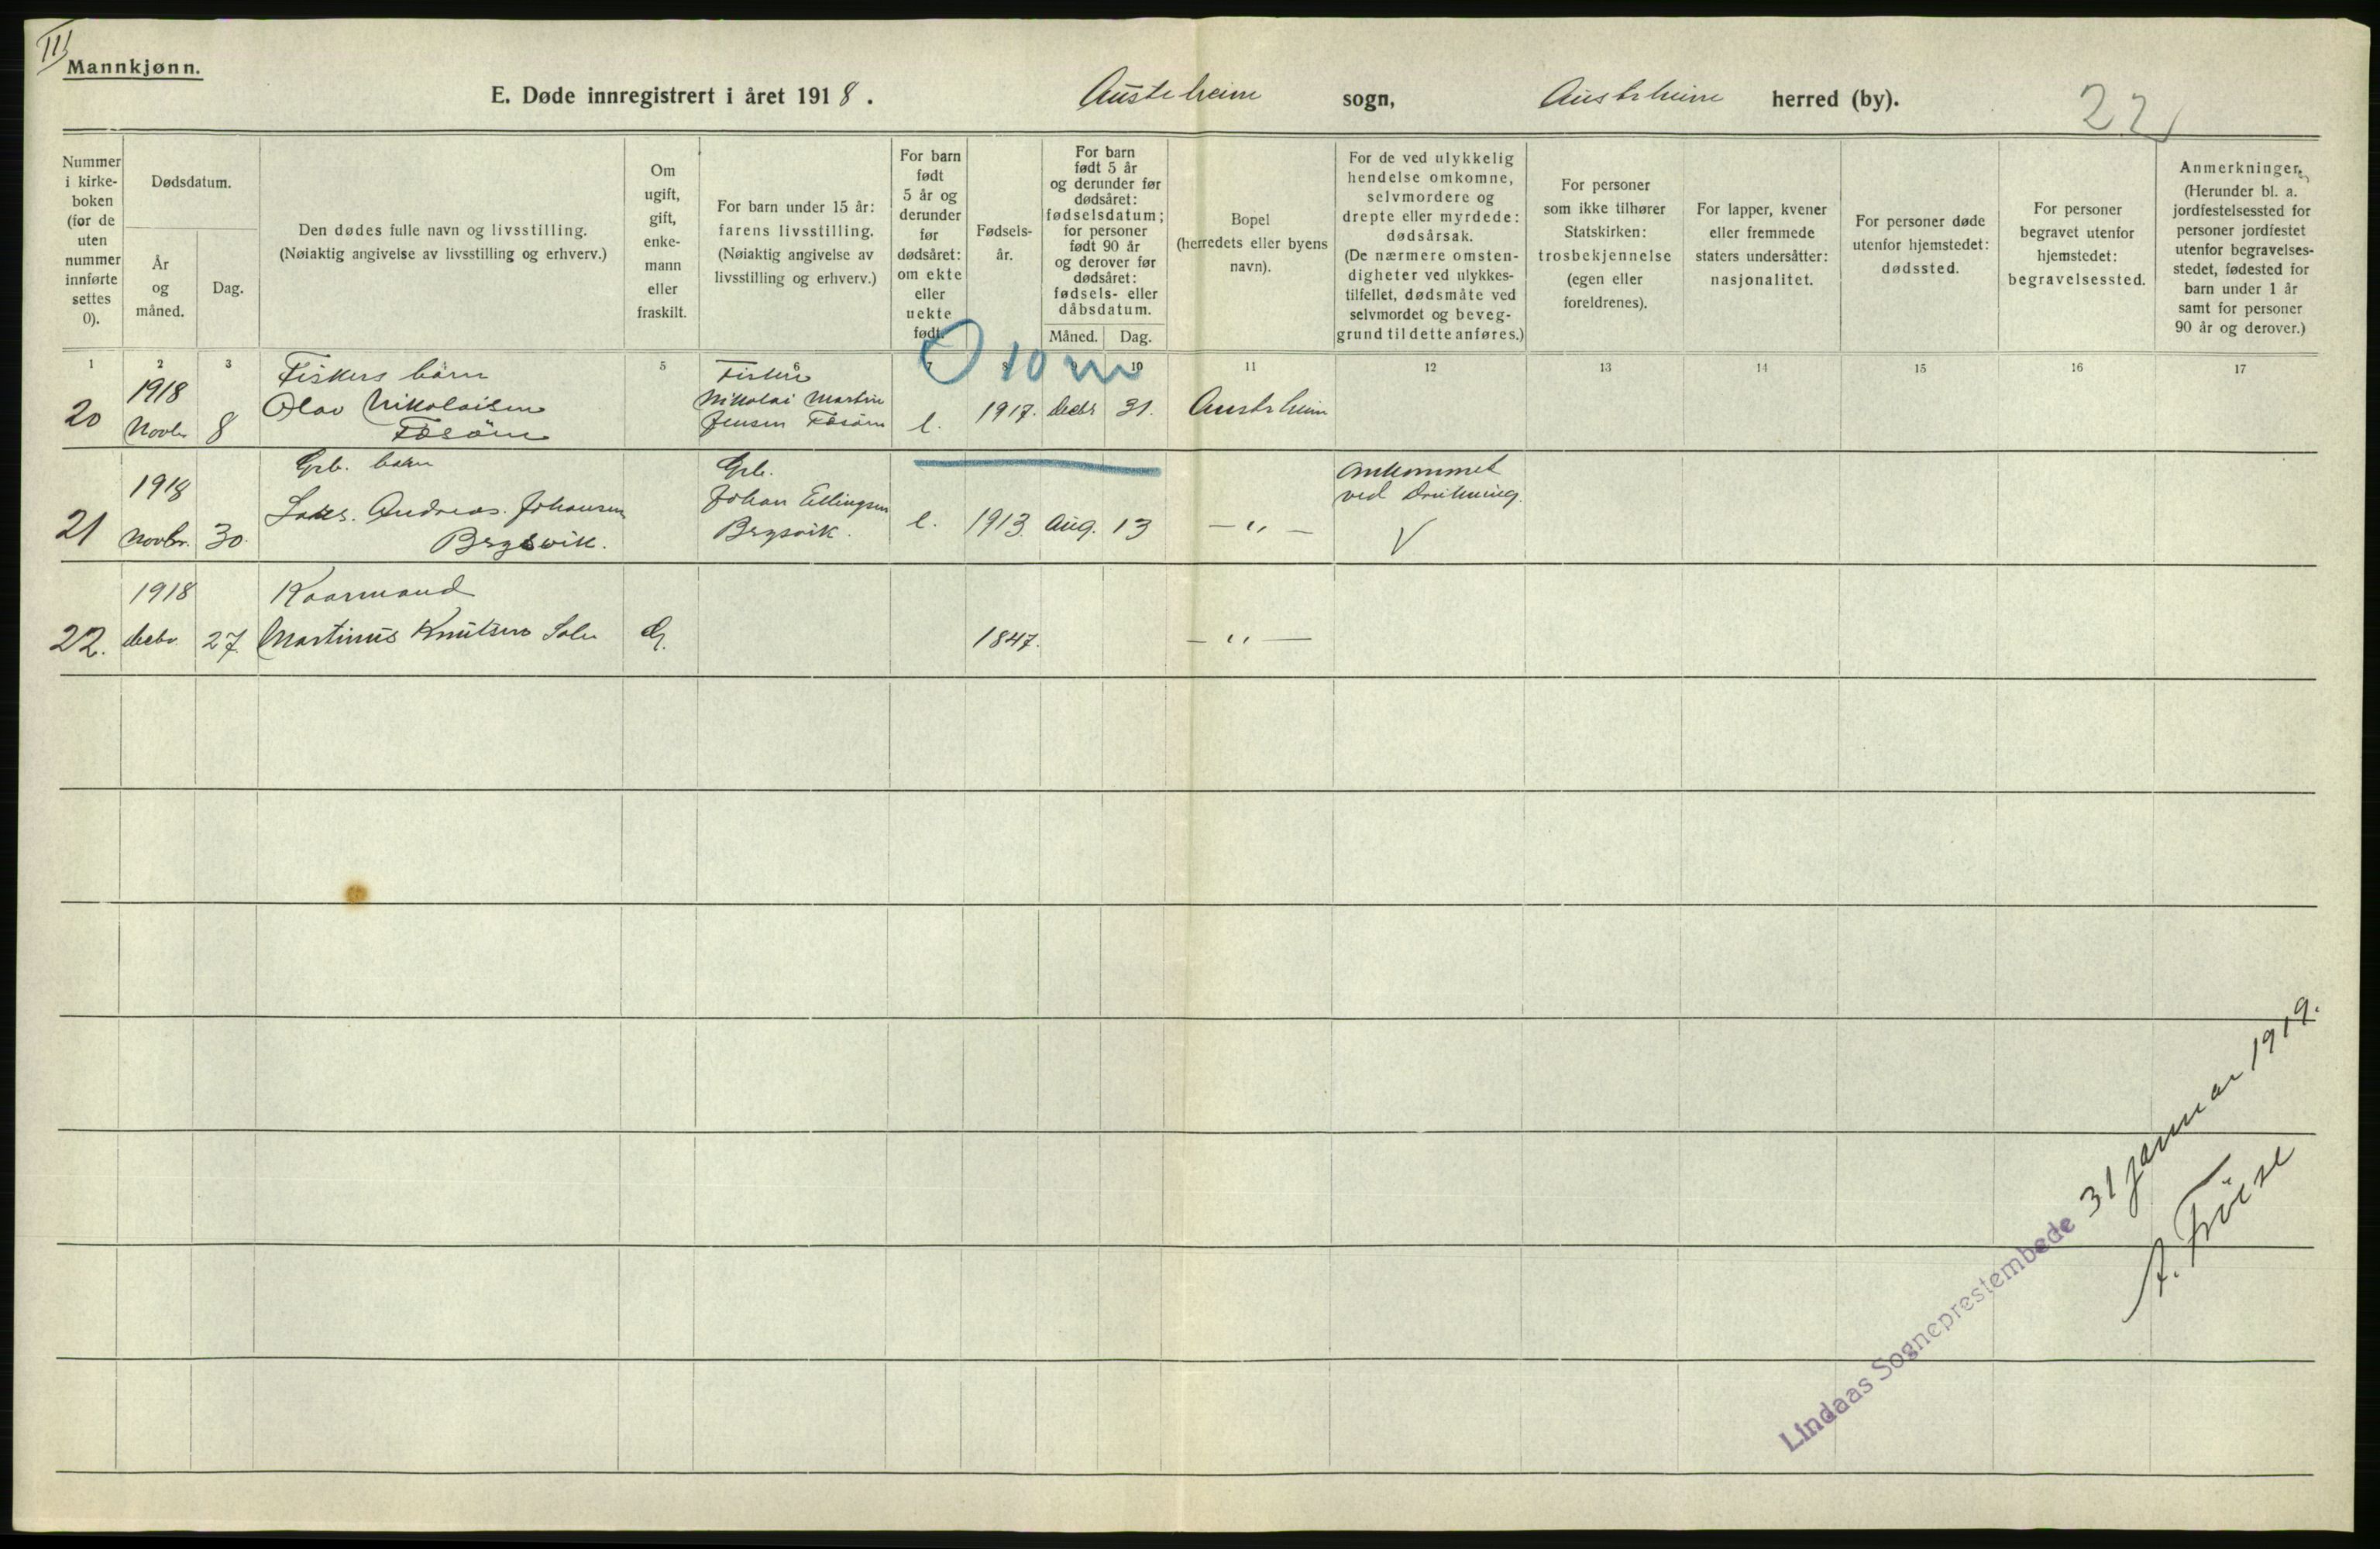 III
Mannkjønn.
E. Døde innregistrert i året 1918. Austrheim sogn, Austrheim herred (by).
22
Nummer i kirke- boken (for de uten nummer innførte settes 0).
Dødsdatum.
År og måned.
Dag.
Den dødes fulle navn og livsstilling.
(Nøiaktig angivelse av livsstilling og erhverv.)
Om ugift, gift, enke- mann eller fraskilt.
For barn under 15 år: farens livsstilling.
(Nøiaktig angivelse av livsstilling og erhverv.)
For barn født 5 år og derunder før dødsåret: om ekte eller uekte født.
Fødsels- år.
For barn født 5 år og derunder før dødsåret: fødselsdatum; for personer født 90 år og derover før dødsåret: fødsels- eller dåbsdatum.
Måned. Dag.
Bopel (herredets eller byens navn).
For de ved ulykkelig hendelse omkomne, selvmordere og drepte eller myrdede: dødsårsak.
(De nærmere omsten- digheter ved ulykkes- tilfellet, dødsmåte ved selvmordet og beveg- grund til dette anføres.)
For personer som ikke tilhører Statskirken: trosbekjennelse (egen eller foreldrenes).
For lapper, kvener eller fremmede staters undersåtter: nasjonalitet.
For personer døde utenfor hjemstedet: dødssted.
For personer begravet utenfor hjemstedet: begravelsessted.
Anmerkninger.
(Herunder bl. a. jordfestelsessted for personer jordfestet utenfor begravelses- stedet, fødested for barn under 1 år samt for personer 90 år og derover.)
1 2 3 5 6 7 8 9 10 11 12 13 14 15 16 17
O 10 m
20 1918 Novbr 8 Fiskers barn Olav Nikolaisen Fosøen Fisker Nikolai Martin Jensen Fosøen e. 1917. Decbr 31. Austrheim
21 1918 Novbr. 30. Grb. barn Andreas Johansen Bergsvik. Grb. Johan Ellingsen Bergsvik. e. 1913. Aug. 13 — " — omkommet ved Drukning. V
22. 1918 Decbr. 27. Kaarmand Martinus Knutsen G. 1847. — " —
Lindaas Sogneprestembede 31 januar 1919.